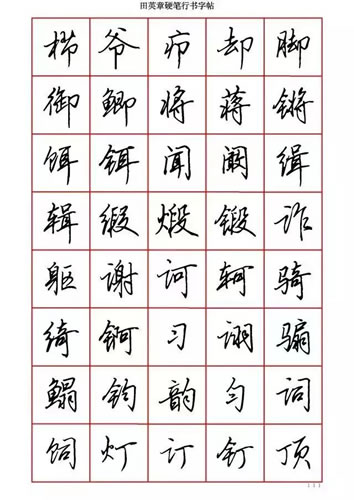 田英章硬笔行书字帖
栉 爷 疖 却 脚
御 鲫 将 蒋 锵
饵 铒 闻 阚 缉
辑 缎 煅 锻 诈
躯 谢 诃 轲 骑
绮 锕 习 诩 骟
鳎 钧 韵 匀 词
饲 灯 订 钉 顶